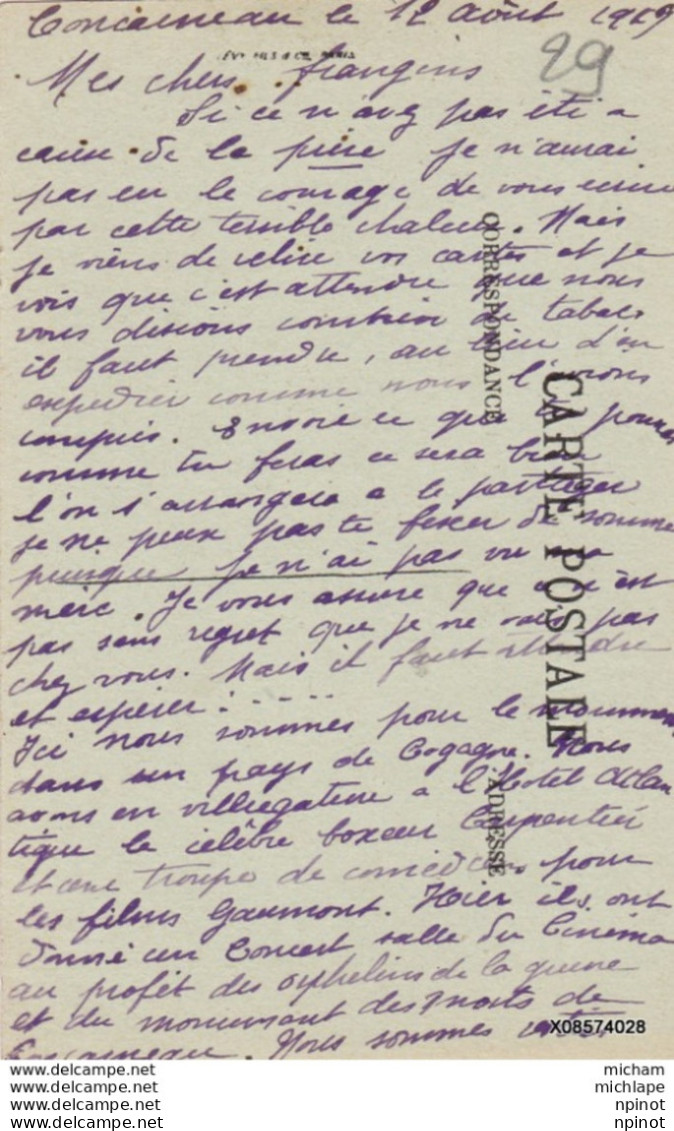 Concarneau le 12 août 1919
29
Mes chers frangins
Si ce n'avez pas été a
cause de la pièce je n'aurai
pas eu le courage de vous écrire
par cette terrible chaleur. Mais
je viens de relire vos cartes et je
vois que c'est attendre que nous
vous disions combien de tabac
il faut prendre, au lieu d'en
expédier comme nous l'avions
compris. Encore ce que tu pourras
comme tu feras ce sera bien
l'on s'arrangera a le partager
je ne peux pas te fixer de somme
puisque je n'ai pas vu la
merc. Je vous assure que ce n'est
pas sans regret que je ne vais pas
chez vous. Mais il faut attendre
et espérer : . . . . .
Ici nous sommes pour le moment
dans un pays de Cogagne. Nous
avons en villegiature a l'Hotel Atlan
tique le célèbre boxeur Carpentier
et une troupe de comédiens pour
les films Gaumont. Hier ils ont
donné un Concert salle du Cinéma
au profit des orphelins de la guerre
et du monument des Morts de
Concarneau. Nous sommes
CORRESPONDANCE
CARTE POSTALE
ADRESSE
X08574028
www.delcampe.net micham
www.delcampe.net michlape
www.delcampe.net npinot
www.delcampe.net npinot